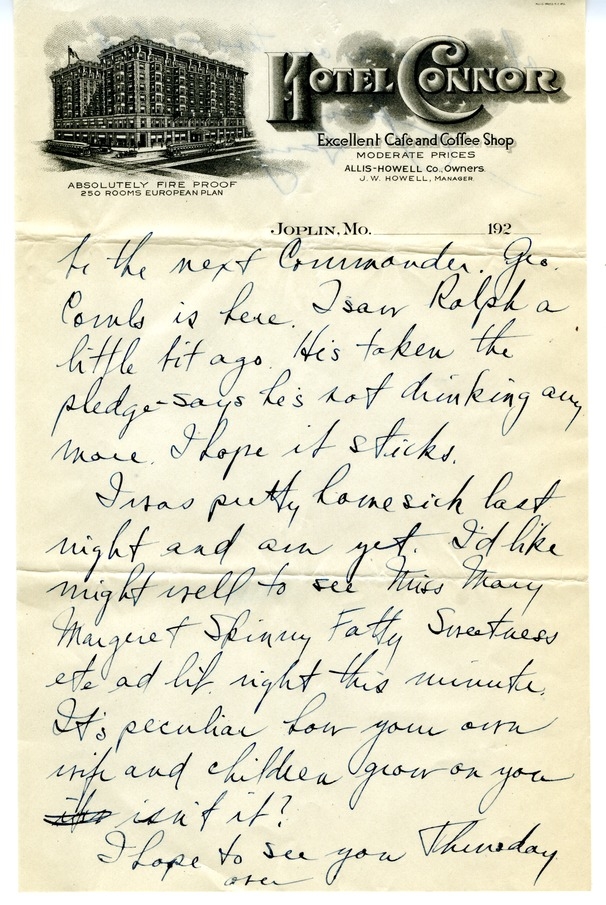 HOTEL CONNOR
Excellent Cafe and Coffee Shop
MODERATE PRICES
ALLIS-HOWELL CO., OWNERS.
J. W. HOWELL, MANAGER
ABSOLUTELY FIRE PROOF
250 ROOMS EUROPEAN PLAN
JOPLIN, MO. 192
be the next Commander. Geo.
Combs is here. I saw Ralph a
little bit ago. He's taken the
pledge - says he's not drinking any
more. I hope it sticks.
I was pretty homesick last
night and am yet. I'd like
might well to see Miss Mary
Margeret Skinny Fatty Sweetness
etc ad lib. right this minute.
It's peculiar how your own
wife and children grow on you
isn't it?
I hope to see you Thursday
over